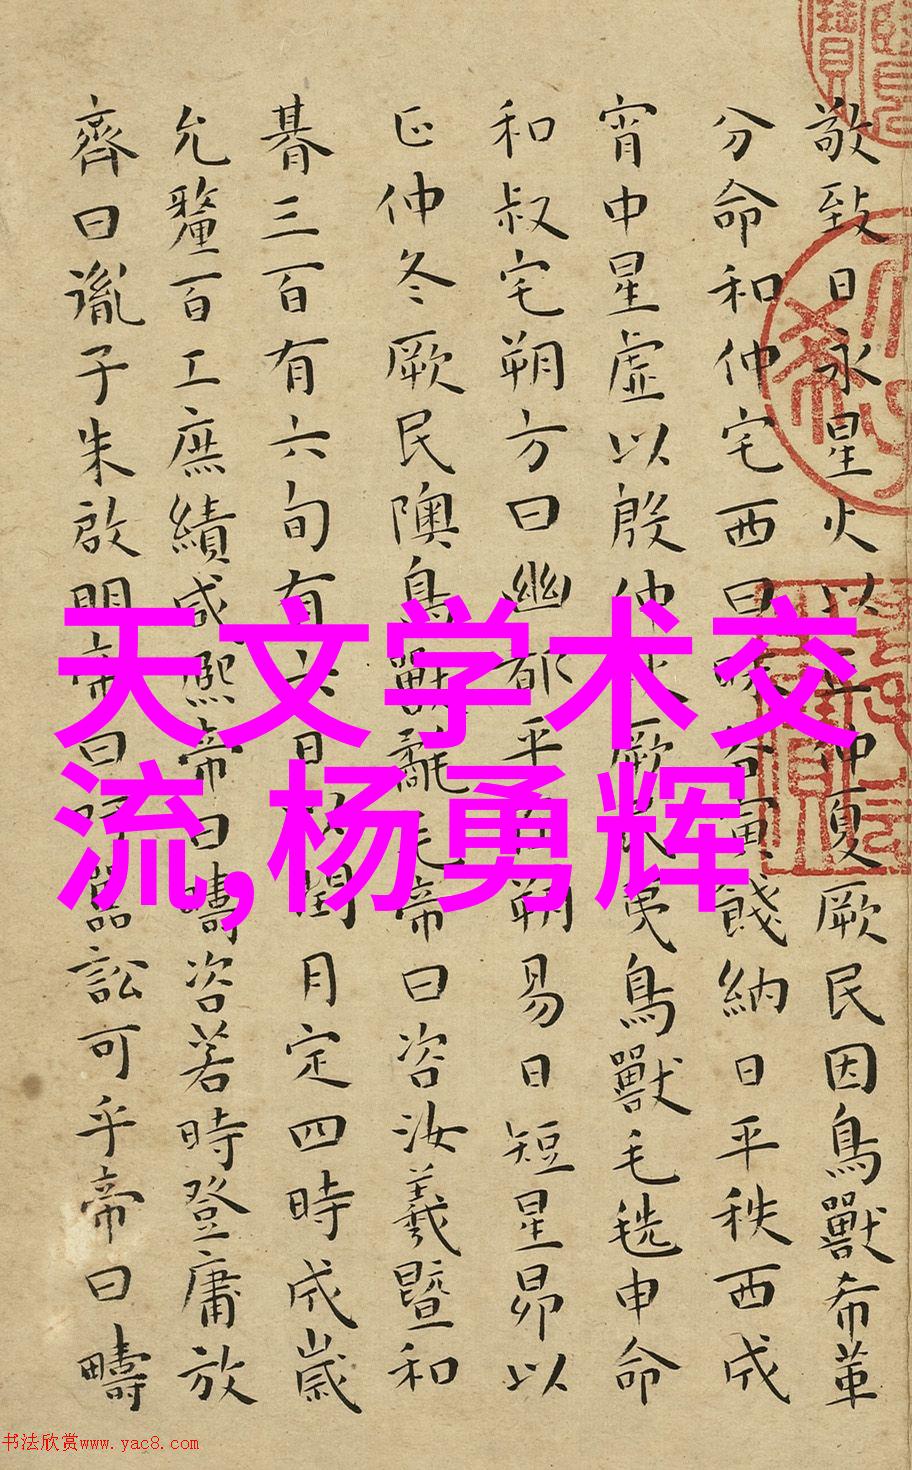 敬致日永星火以仲夏厥民因鳥獸希革
分命和仲宅西曰昧谷寅餞納日平秩西成
宵中星虛以殷仲厥夷鳥獸毛毨申命
和叔宅朔方曰幽都平朔易日短星昴以
正仲冬厥民隩鳥獸氄毛帝曰咨汝羲暨和
朞三百有六旬有六日以閏月定四時成歲
允釐百工庶績咸熙帝曰疇咨若時登庸放
齊曰胤子朱啟明帝曰吁嚚訟可乎帝曰疇
天文学术交
流,杨勇辉
书法欣赏www.yac8.com